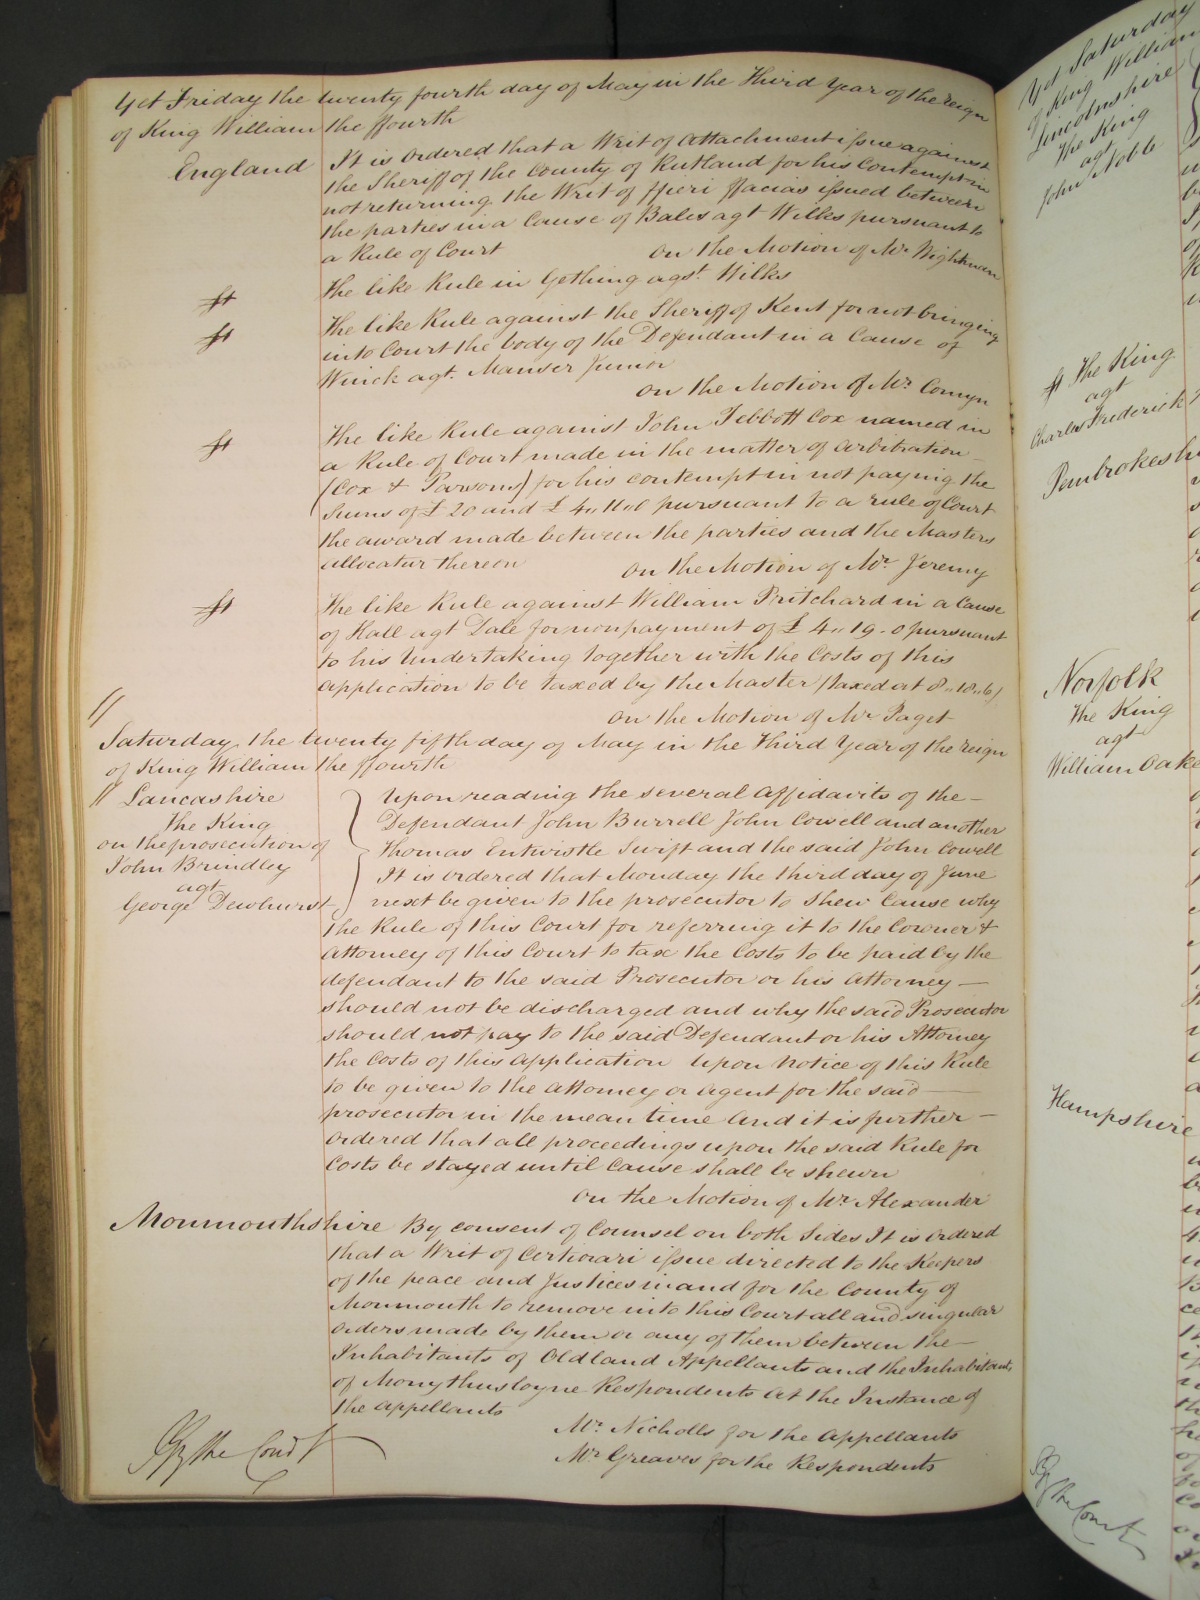 Yet Friday the twenty fourth day of May in the Third Year of the reign
of King William the ffourth
England It is Ordered that a Writ of Attachment issue against
the Sheriff of the County of Rutland for his Contempt in
not returning the Writ of ffieri ffacias issued between
the parties in a Cause of Bales agt Wilkes pursuant to
a Rule of Court
On the Motion of Mr Wightman
The like Rule in Gething agst. Wilks
The like Rule against the Sheriff of Kent for not bringing
into Court the body of the Defendant in a Cause of
Winck agt. Manser Junior
On the Motion of Mr. Comyn
The like Rule against John Tebbott Cox named in
a Rule of Court made in the matter of Arbitration
(Cox & Parsons) for his contempt in not paying the
Sums of £20 and £4,, 11,,0 pursuant to a rule of Court
the award made between the parties and the Masters
allocatur thereon
On the Motion of Mr. Jeremy
The like Rule against William Pritchard in a Cause
of Hall agt Dale for nonpayment of £4,, 19 - 0 pursuant
to his Undertaking together with the Costs of this
application to be taxed by the Master /taxed at 8,, 18,, 6/
On the Motion of Mr Paget
Saturday the twenty fifth day of May in the Third Year of the reign
of King William the ffourth
Lancashire
The King
on the prosecution of
John Brindley
agt
George Dewhurst
Upon reading the several Affidavits of the
Defendant John Burrell John Cowell and another
Thomas Entwistle Swift and the said John Cowell
It is ordered that Monday the third day of June
next be given to the prosecutor to shew Cause why
the Rule of this Court for referring it to the Coroner &
Attorney of this Court to tax the Costs to be paid by the
defendant to the said Prosecutor or his Attorney
should not be discharged and why the said Prosecutor
should not pay to the said Defendant or his Attorney
the Costs of this application Upon Notice of this Rule
to be given to the Attorney or Agent for the said
prosecutor in the mean time And it is further
Ordered that all proceedings upon the said Rule for
Costs be stayed until Cause shall be shewn
On the Motion of Mr. Alexander
Monmouthshire By consent of Counsel on both Sides It is ordered
that a Writ of Certiorari issue directed to the Keepers
of the peace and Justices in and for the County of
Monmouth to remove into this Court all and singular
Orders made by them or any of them between the
Inhabitants of Oldland Appellants and the Inhabitants
of Monythusloyne Respondents At the Instance of
the appellants
Mr. Nicholls for the Appellants
Mr Greaves for the Respondents
By the Court
Yet Saturday
of King William
Lincolnshire
The King
agt
John Noble
The King
agt
Charles Frederick
Pembrokeshi
Norfolk
The King
agt
William Oake
Hampshire
By the Court